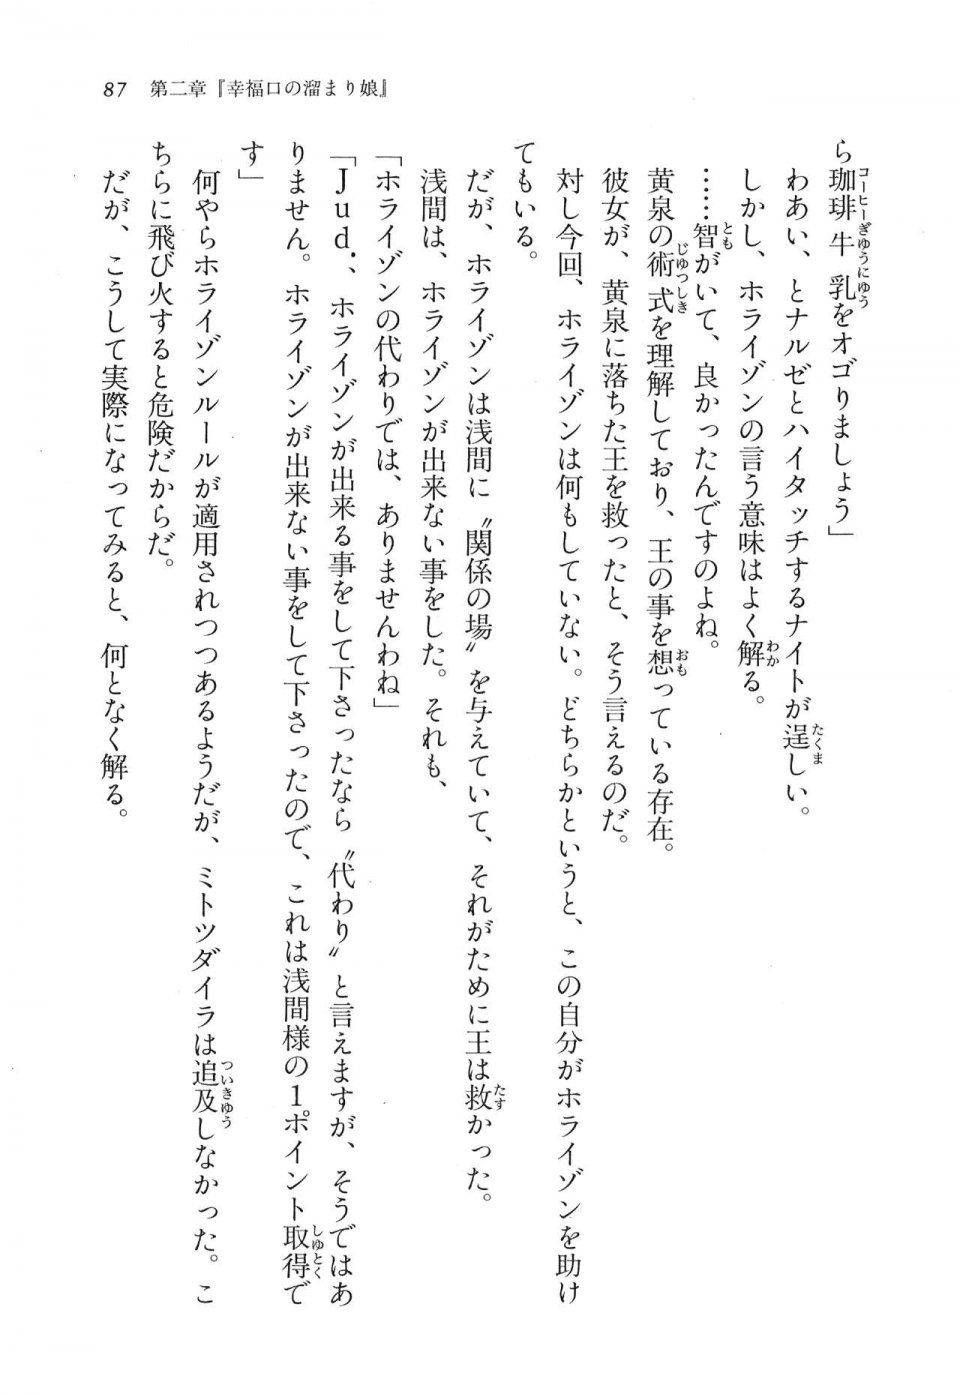 87　第二章『幸福口の溜まり娘』
ら珈琲牛乳をオゴりましょう」
わあい、とナルゼとハイタッチするナイトが逞しい。
しかし、ホライゾンの言う意味はよく解る。
……智がいて、良かったんですのよね。
黄泉の術式を理解しており、王の事を想っている存在。
彼女が、黄泉に落ちた王を救ったと、そう言えるのだ。
対し今回、ホライゾンは何もしていない。どちらかというと、この自分がホライゾンを助け
てもいる。
だが、ホライゾンは浅間に〝関係の場〟を与えていて、それがために王は救かった。
浅間は、ホライゾンが出来ない事をした。それも、
「ホライゾンの代わりでは、ありませんわね」
「Ｊｕｄ．、ホライゾンが出来る事をして下さったなら〝代わり〟と言えますが、そうではあ
りません。ホライゾンが出来ない事をして下さったので、これは浅間様の１ポイント取得で
す」
何やらホライゾンルールが適用されつつあるようだが、ミトツダイラは追及しなかった。こ
ちらに飛び火すると危険だからだ。
だが、こうして実際になってみると、何となく解る。